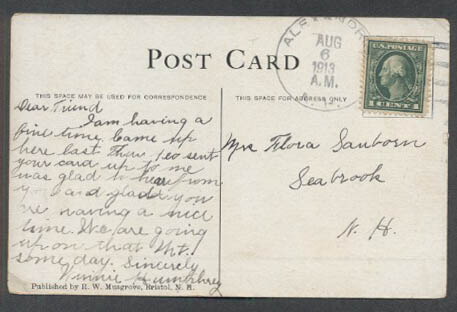 POST CARD
THIS SPACE MAY BE USED FOR CORRESPONDENCE
THIS SPACE FOR ADDRESS ONLY
ALEXANDR
AUG
6
1913
A.M.
N. H.
U.S. POSTAGE
1 CENT 1
Dear Friend
I am having a
fine time. Came up
here last Thur. Leo sent
your card up to me
was glad to hear from
you and glad you
are having a nice
time. We are going
up on that Mt.
some day. Sincerely
Vinnie Humphrey
Mrs Flora Sanborn
Seabrook
N. H.
Published by R. W. Musgrove, Bristol, N. H.